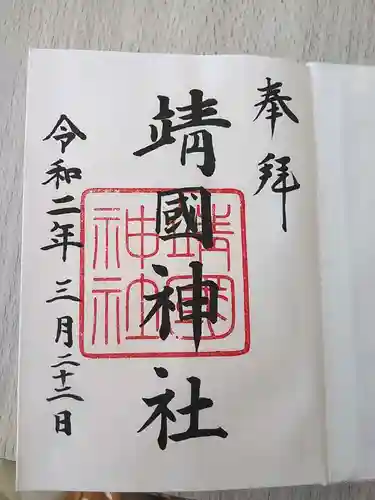 奉拝
靖國神社
靖國神社
令和二年三月二十二日